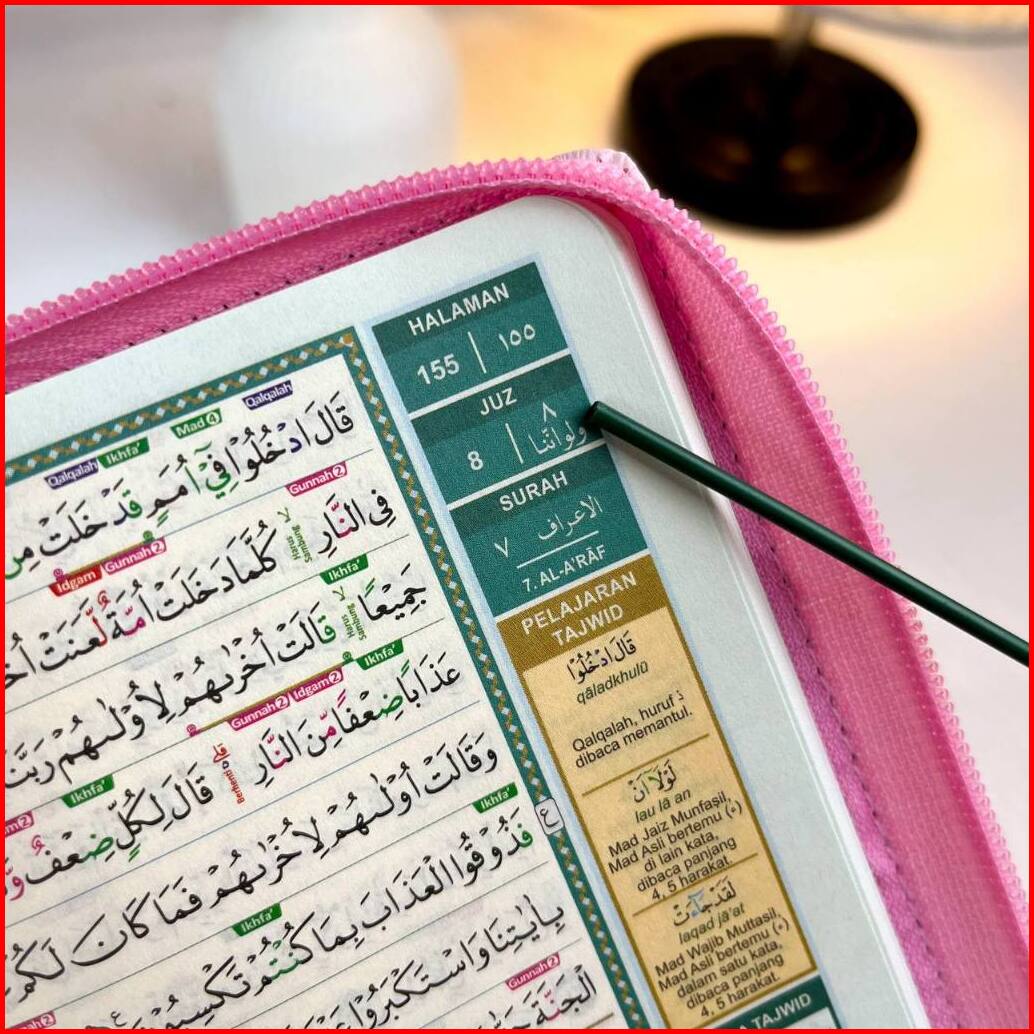 HALAMAN
155 | ١٥٥
JUZ
8 | ٨
ولواننا
SURAH
٧ الاعراف
7. AL-A'RĀF
PELAJARAN
TAJWID
قَالَ ادْخُلُوْا
qāladkhulū
Qalqalah, huruf د
dibaca memantul.
لَوْلَآ اَنْ
lau lā an
Mad Jaiz Munfasil,
Mad Asli bertemu (ء)
di lain kata,
dibaca panjang
4, 5 harakat.
لَقَدْ جَاۤءَتْ
laqad jā'at
Mad Wajib Muttasil,
Mad Asli bertemu (ء)
dalam satu kata,
dibaca panjang
4, 5 harakat.
TAJWID
Qalqalah Mad 4 Ikhfa' Qalqalah
قَالَ ادْخُلُوْا فِيْٓ اُمَمٍ قَدْ خَلَتْ مِنْ
Gunnah 2 Gunnah 2 Idgam
فِى النَّارِ Harus Sambung كُلَّمَا دَخَلَتْ اُمَّةٌ لَّعَنَتْ
Ikhfa'
جَمِيْعًا Harus Sambung قَالَتْ اُخْرٰىهُمْ لِاُوْلٰىهُمْ رَبَّنَا
Ikhfa' Idgam 2 Gunnah 2
عَذَابًا ضِعْفًا مِّنَ النَّارِ Berhenti قَالَ لِكُلٍّ ضِعْفٌ
Ikhfa'
وَقَالَتْ اُوْلٰىهُمْ لِاُخْرٰىهُمْ فَمَا كَانَ لَكُمْ
Ikhfa' ع
فَذُوْقُوا الْعَذَابَ بِمَا كُنْتُمْ تَكْسِبُوْنَ ع
Ikhfa'
بِاٰيٰتِنَا وَاسْتَكْبَرُوْا
Gunnah 2
الْجَنَّةَ